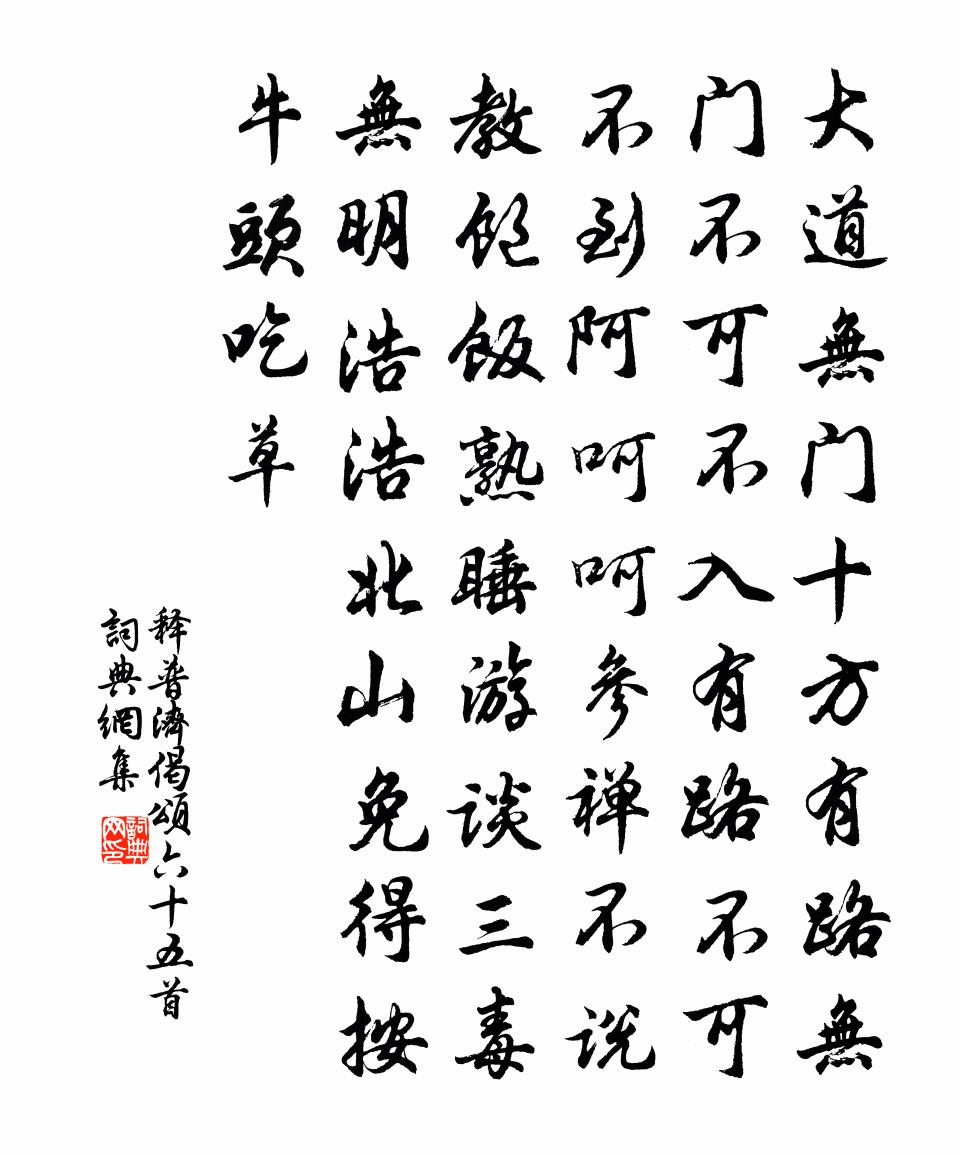 大道無门十方有路無
门不可不入有路不可
不到阿呵呵參禅不说
教饱飯熟睡游谈三毒
無明浩浩北山免得按
牛頭吃草
释普濟偈頌六十五首
詞典網集
詞典网印